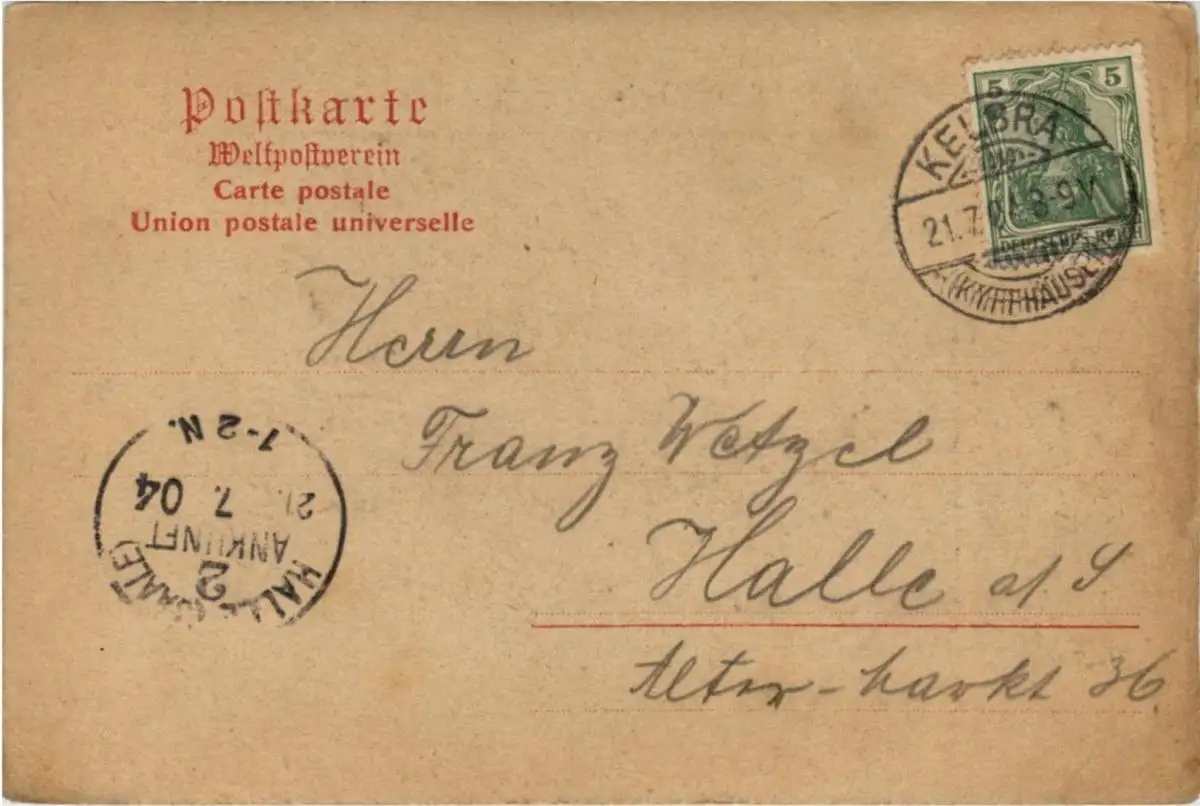 Postkarte
Weltpostverein
Carte postale
Union postale universelle
5 5
KELBRA
21.7.04 8-9V
(KYFFHÄUSER)
DEUTSCHES REICH
Herrn
Franz Wetzel
Halle a/S
Alter-Markt 36
HALLE (SAALE)
2
ANKUNFT
21. 7. 04
1-2 N.